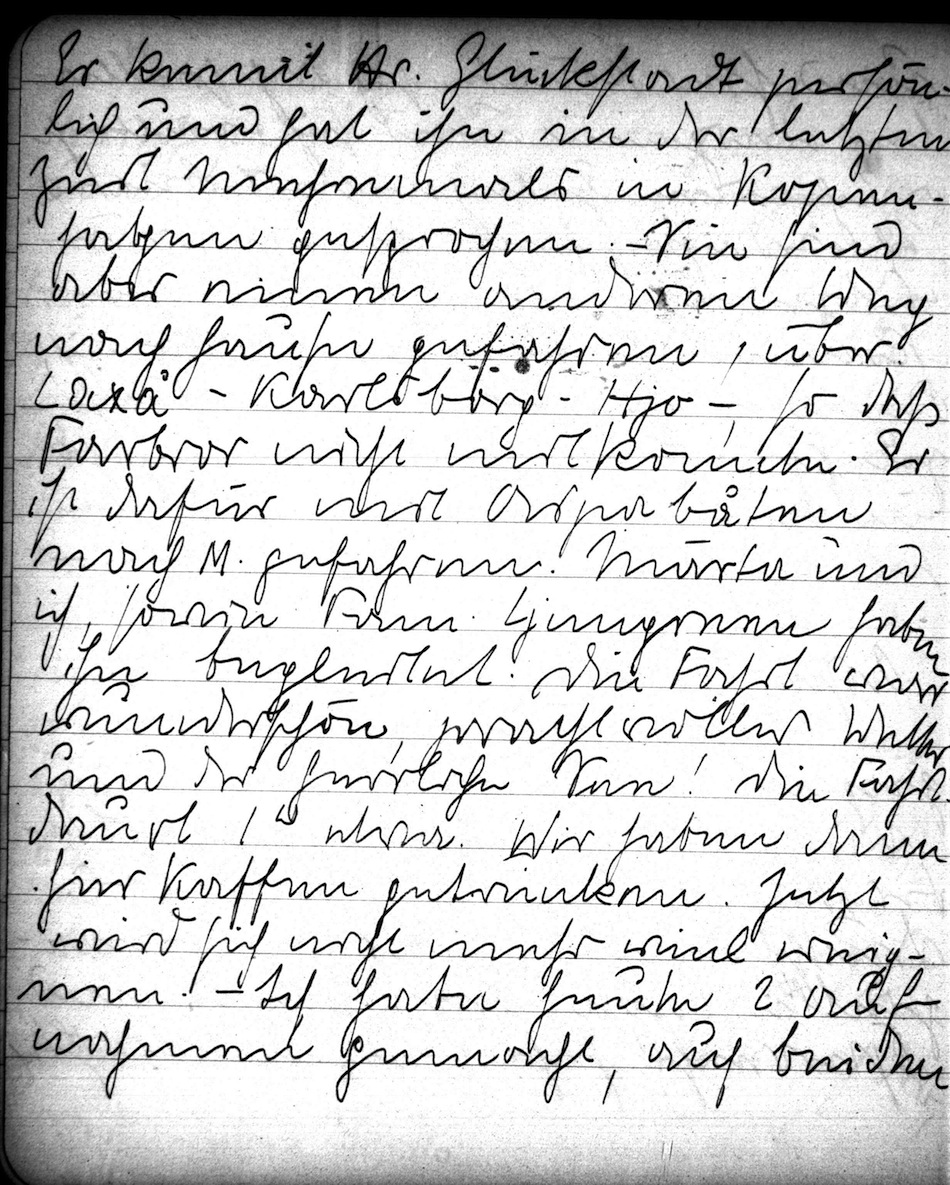 Er kennt Hr. Glückstadt persön-
lich und hat ihn in der letzten
Zeit mehreremals in Kopen-
hagen gesprochen. – Sie sind
aber einen anderen Weg
nach Hause gefahren, über
Laxå – Karlsborg – Hjo –, so daß
Farbror nicht mit konnte. Er
ist dafür mit Aspabåten
nach M. gefahren. Märta und
ich, sowie Fam. Ljunggren haben
ihn begleitet. Die Fahrt war
wunderschön, prachtvolles Wetter
und der herrliche See! Die Fahrt
dauert 1ʰ etwa. Wir haben dann
hier Kaffee getrunken. Jetzt
wird sich nicht mehr viel ereig-
nen. – Ich habe heute 2 Auf-
nahmen gemacht, auf beiden